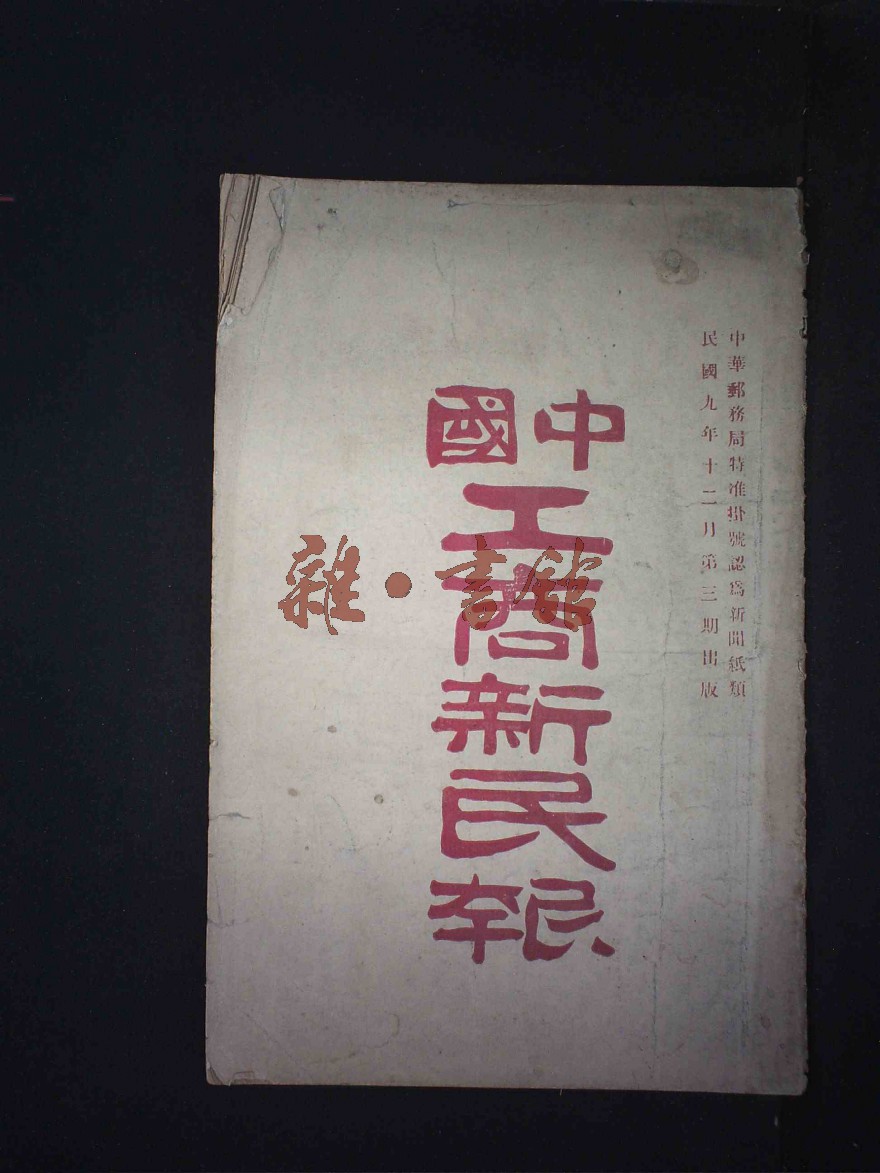 中華郵務局特准掛號認爲新聞紙類
民國九年十二月第三期出版
中國
工商新民報
雜·書館